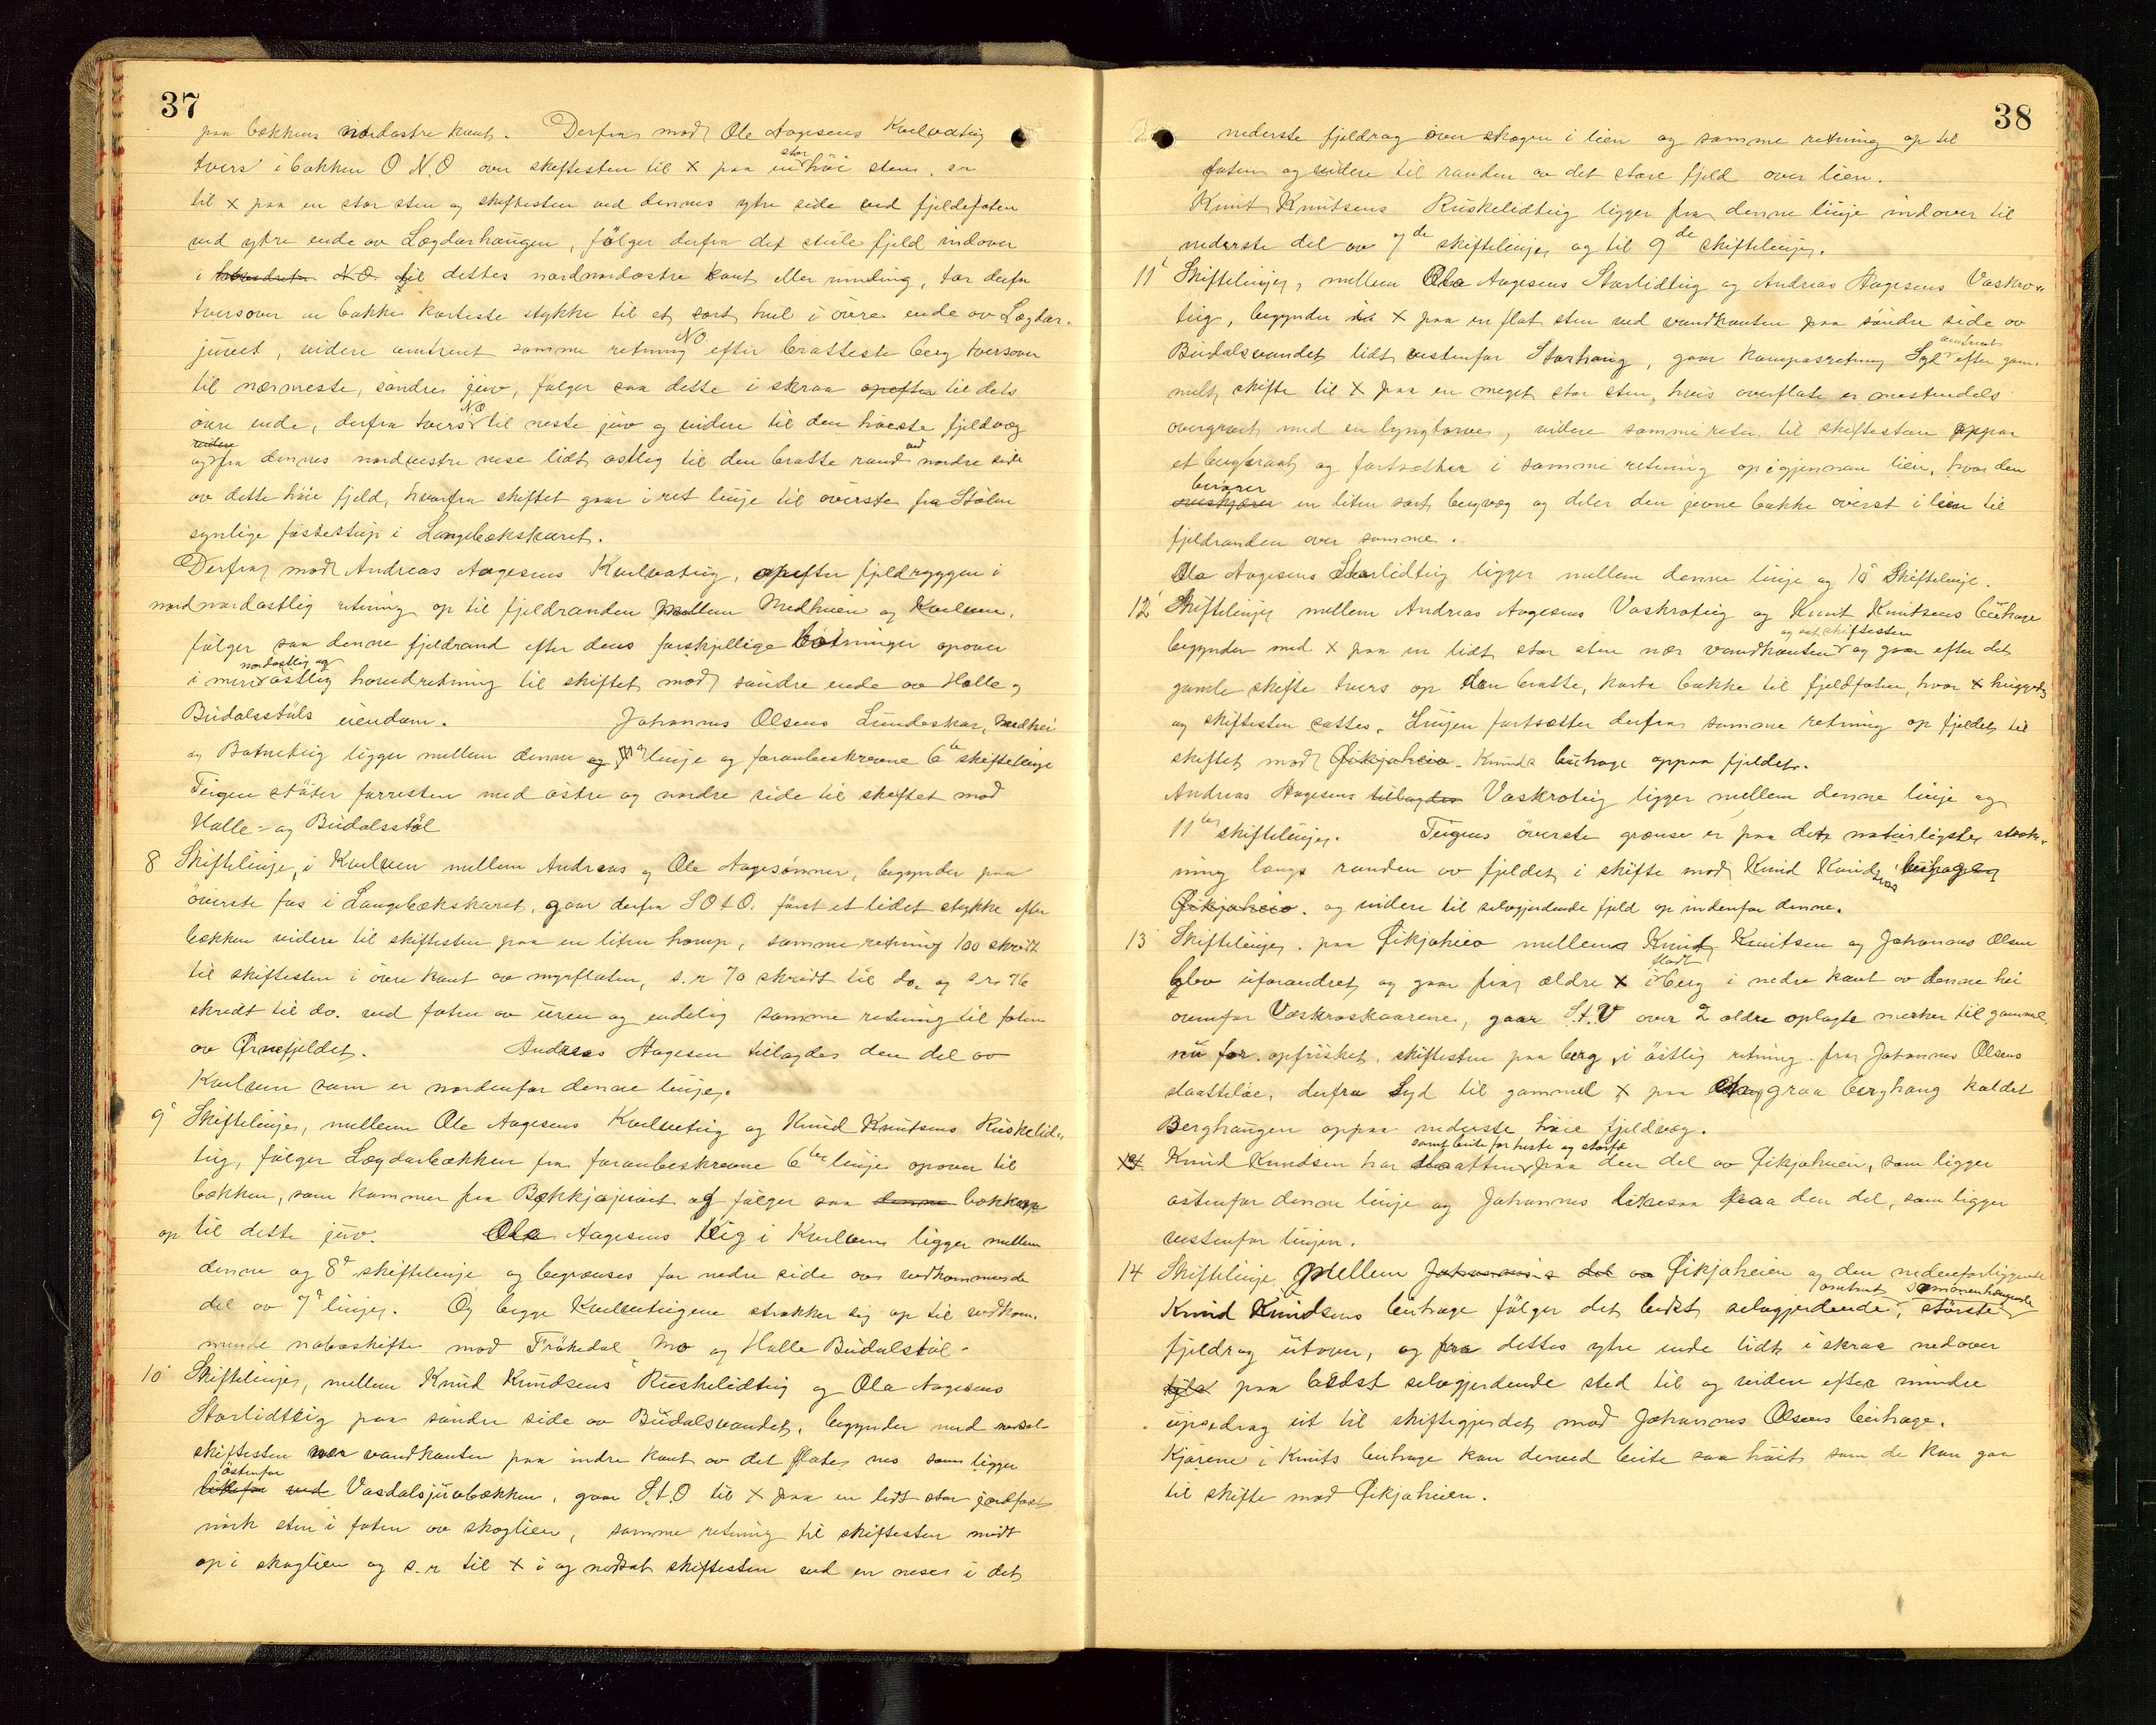 37
paa bækkens nordøstre kant. Derfra mod Ole Aagesens Kvelvateig
tvers i bakken O N.O over skiftesten til x paa en stor høi sten, sr
til x paa en stor sten og skiftesten ved dennes ytre side ved fjeldefoten
ved ytre ende av Lægdarhaugen, følger derfra det steile fjeld indover
i NO. til dettes nordnordøstre kant eller runding, tar derfra
tversover en bakke korteste stykke til et sort hul i øvre ende av Lægdar-
juvet, videre omtrent samme retning NO efter bratteste berg tversover
til nærmeste, søndre juv, følger saa dette i skraa opefter til dets
øvre ende, derfra tvers NO til neste juv og videre til den høieste fjeldvæg
og videre fra dennes nordvestre nese lidt østlig til den bratte rand ved nordre side
av dette høie fjeld, hvorfra skiftet gaar i ret linje til øverste fra Stølen
synlige fossestup i Langebækskaret.
Derfra mod Andreas Aagesens Kvelvateig, opefter fjeldryggen i
nordnordøstlig retning op til fjeldranden mellem Medheien og Kvelven,
følger saa denne fjeldrand efter dens forskjellige bøtninger opover
i mere nordøstlig og østlig hovedretning til skiftet mod søndre ende av Holle og
Budalsstøls eiendom. Johannes Olsens Lundeskar, Medhei
og Botneteig ligger mellem denne og 7de linje og foranbeskrevne 6te skiftelinje
Teigen støter forresten med østre og nordre side til skiftet mod
Holle- og Budalsstøl
8 Skiftelinje, i Kvelven mellem Andreas og Ole Aagesønner, begynder paa
øverste fos i Langebækskaret, gaar derfra SOtO. først et lidet stykke efter
bækken videre til skiftesten paa en liten homp, samme retning 100 skridt
til skiftesten i øvre kant av myrflaten, s.r 70 skridt til do. og s.r. 76
skridt til do. ved foten av uren og endelig samme retning til foten
av Ørnefjeldet. Andreas Aagesen tillagdes den del av
Kvelven som er nordenfor denne linje.
9 Skiftelinje, mellem Ole Aagesens Kvelveteig og Knud Knutsens Ruskelid-
teig, følger Lægdarbækken fra foranbeskrevne 6te linje opover til
bækken, som kommer fra Bækkjajuvet og følger saa denne bækken
op til dette juv. Ola Aagesens teig i Kvelven ligger mellem
denne og 8de skiftelinje og begrænses for nedre side av vedkommende
del av 7de linje. Og begge Kvelveteigene strækker sig op til vedkom-
mende naboskifte mod Frøkedal, Mo og Holle Budalstøl.
10 Skiftelinje, mellem Knud Knudsens Ruskelidteig og Ola Aagesens
Storlidteig paa søndre side av Budalsvandet, begynder med nedsat
skiftesten nær vandkanten paa indre kant av det flate nes som ligger
østenfor ved Vasdalsjuvbækken, gaar S.t.O til x paa en lidt stor jordfast
mørk sten i foten av skoglien, samme retning til skiftesten midt
op i skoglien og s.r til x i og nedsat skiftesten ved en nese i det
38
nederste fjeldrag over skogen i lien og samme retning op til
foten og videre til randen av det store fjeld over lien.
Knut Knutsens Ruskelidteig ligger fra denne linje indover til
nederste del av 7de skiftelinje og til 9de skiftelinje.
11 Skiftelinje, mellem Ola Aagesens Storlidteig og Andreas Aagesens Vaskro-
teig, begynder x paa en flat sten ved vandkanten paa søndre side av
Budalsvandet lidt vestenfor Storhaug, gaar kompasretning Syd omtrent efter gam-
melt skifte til x paa en meget stor sten, hvis overflate er mestendels
overgroet med en lyngtorve, videre samme retn. til skiftesten oppaa
et bergbrant og fortsætter i samme retning op igjennem lien, hvor den
berører en liten sort bergvæg og deler den jevne bakke øverst i lien til
fjeldranden over samme.
Ola Aagesens Storlidteig ligger mellem denne linje og 10de Skiftelinje.
12 Skiftelinje mellem Andreas Aagesens Vaskroteig og Knut Knutsens beitehage
begynder med x paa en lidt stor sten nær vandkanten og sat skiftesten og gaar efter det
gamle skifte tvers op den bratte, korte bakke til fjeldfoten, hvor x huggedes
og skiftesten sattes. Linjen fortsætter derfra samme retning op fjeldet til
skiftet mod Øikjaheia. Knuds beitehage oppaa fjeldet.
Andreas Aagesens tillagdes Vaskroteig ligger mellem denne linje og
11te skiftelinje. Teigens øverste grænse er paa det naturligste stræk-
ning langs randen av fjeldet i skifte mod Knud Knudsens beitehage
Øikjaheia. og videre til selvgjerdende fjeld op indenfor denne.
13 Skiftelinje. paa Øikjaheia mellem Knud Knutsen og Johannes Olsen
blev uforandret og gaar fra ældre x i fladt berg i nedre kant av denne hei
ovenfor Vaskroskaarene, gaar S.t.V over 2 ældre oplagte merker til gammel,
nu for opfrisket, skiftesten paa berg, i østlig retning fra Johannes Olsens
slaatteløe, derfra Syd til gammel x paa graa berghaug kaldet
Berghaugen oppaa nederste høie fjeldvæg.
Knud Knudsen har slaatten samt beite for heste og storfe paa den del av Øikjaheien, som ligger
østenfor denne linje og Johannes likesaa paa den del, som ligger
vestenfor linjen.
14 Skiftelinje mellem Johannes's del av Øikjaheien og den nedenforliggende
Knud Knudsens beitehage følger det bedst selvgjerdende, omtrent sammenhængende største
fjeldrag utover, og fra dettes ytre ende lidt i skraa nedover
paa bedst selvgjerdende sted til og videre efter mindre
opsdrag ut til skiftegjerdet mod Johannes Olsens beitehage.
Kjørene i Knuts beitehage kan dermed beite saa høit som de kan gaa
til skifte mod Øikjaheien.